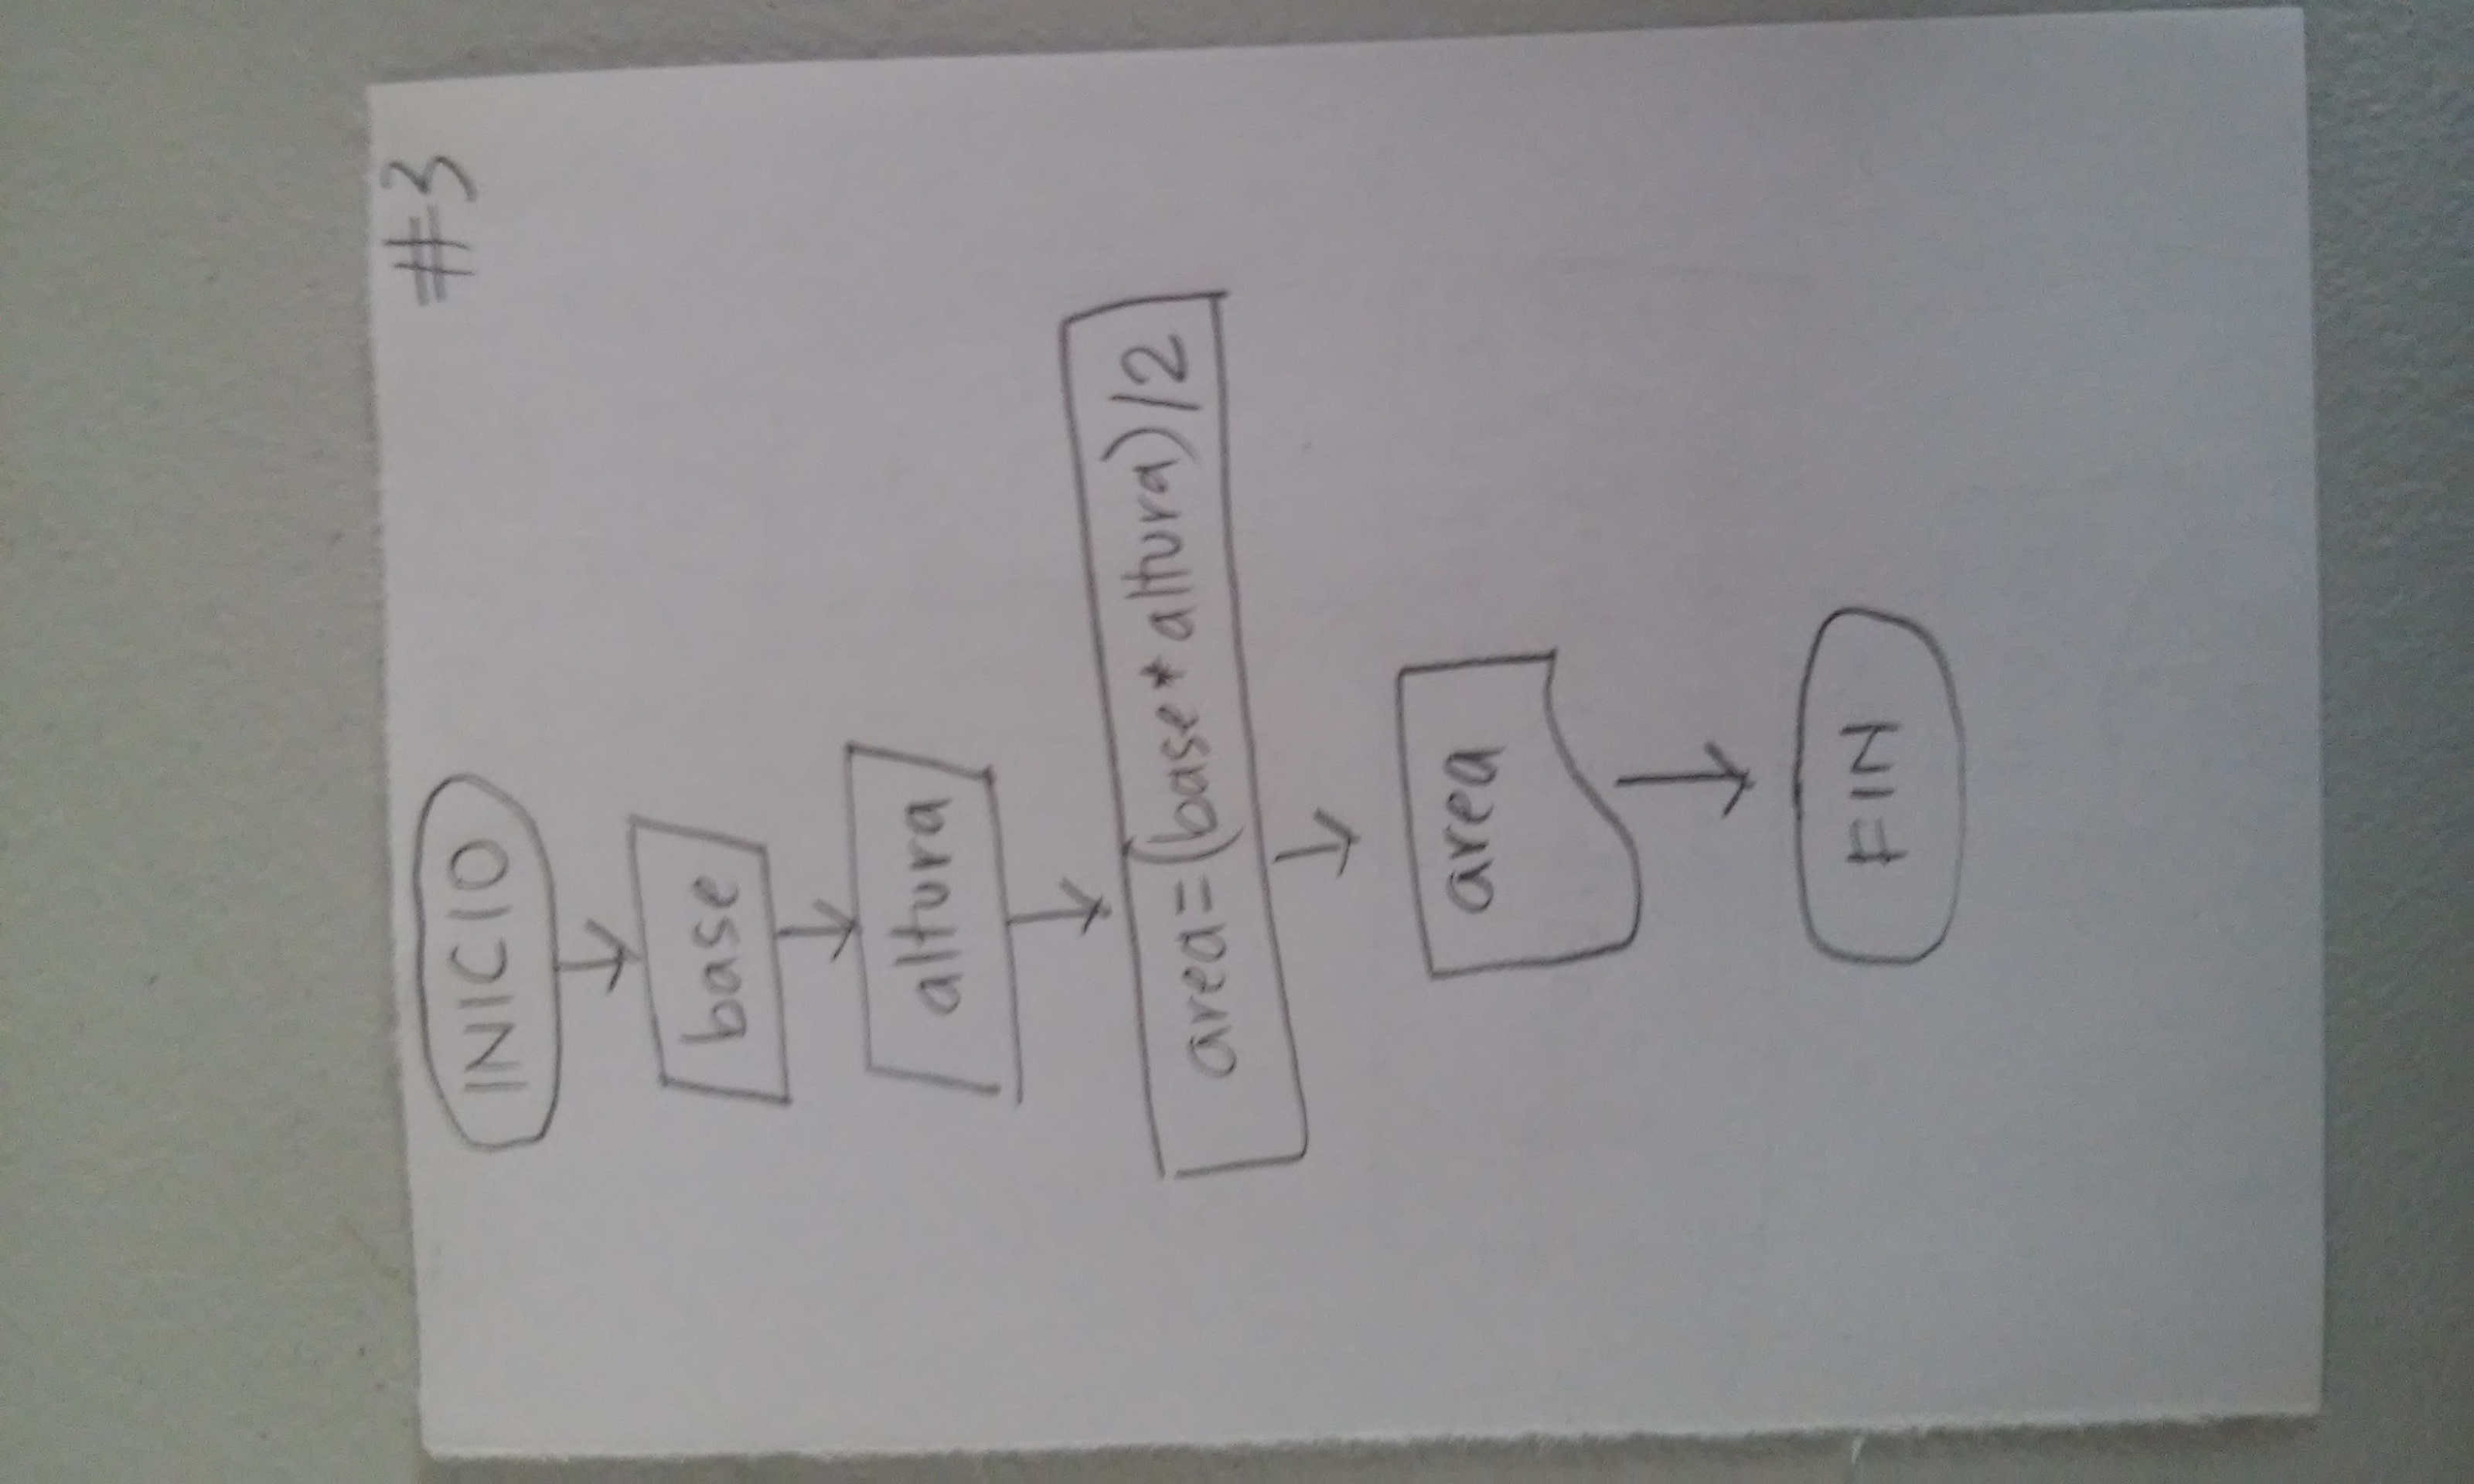 #3
INICIO
base
altura
area=(base*altura)/2
area
FIN